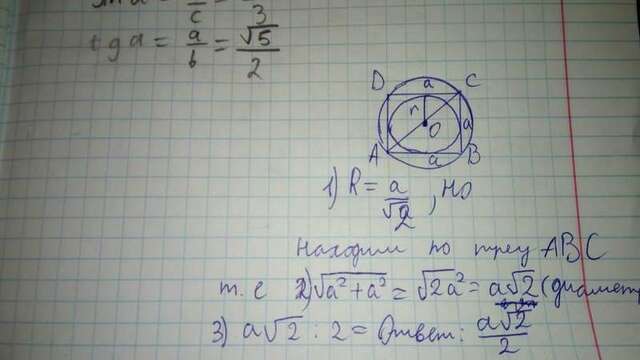 sin a = a/c = √5/3
tg a = a/b = √5/2
D a C
r a
O
A a B
1) R = a/√2, но
находим по треу ABC
т. е 2) √a²+a² = √2a² = a√2 (диамет
3) a√2 : 2 = Ответ: a√2/2